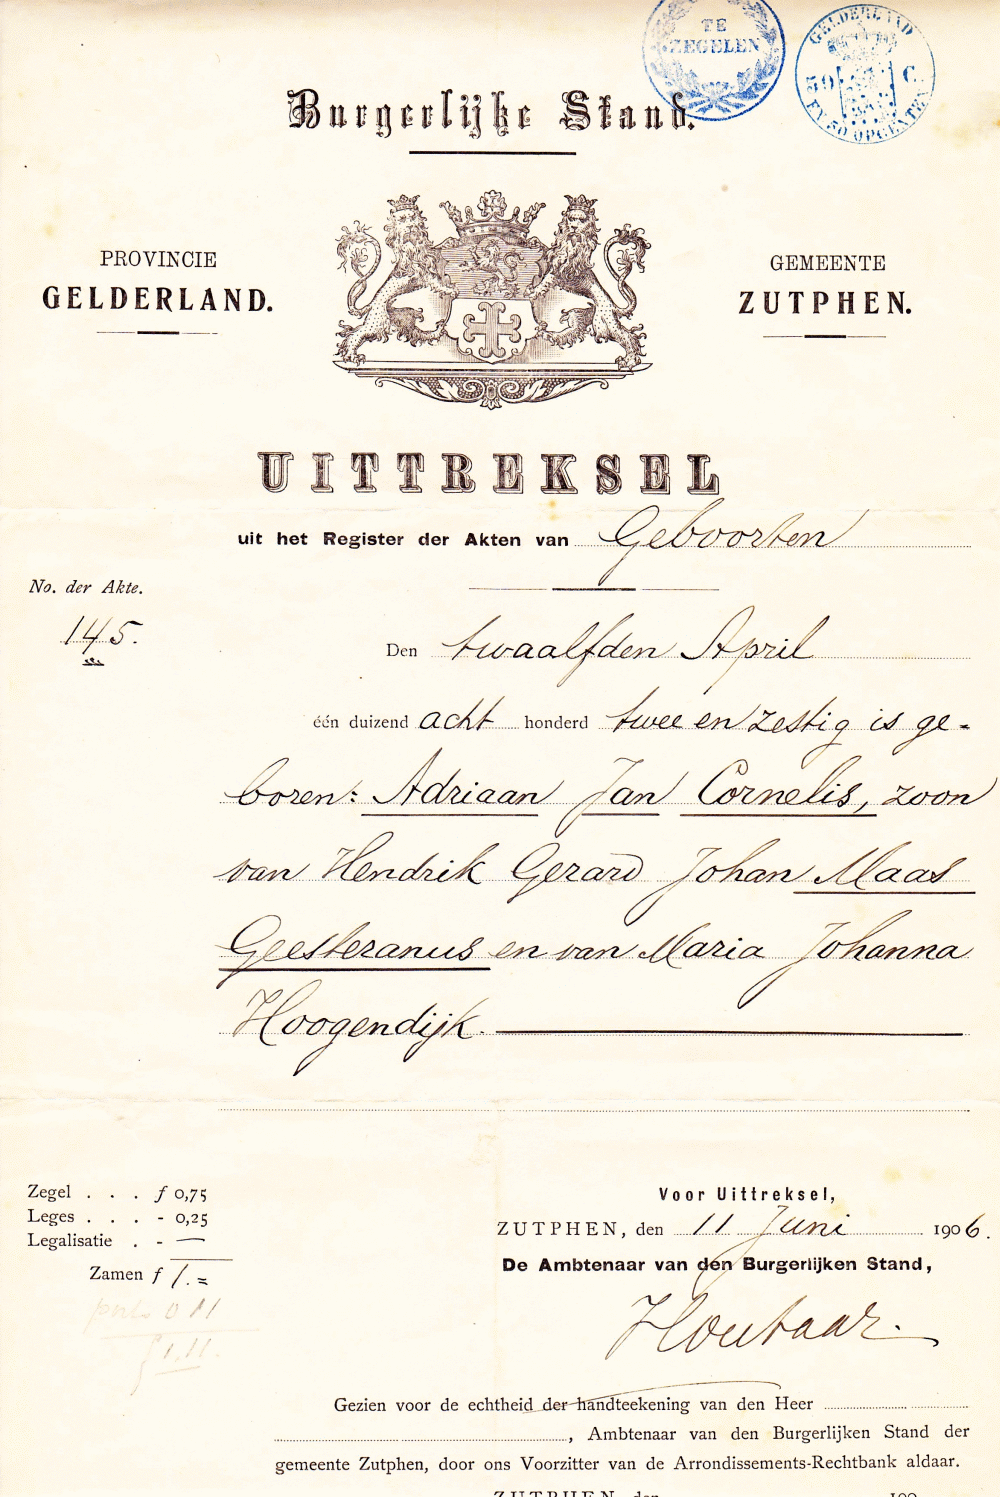 TE
ZEGELEN
GELDERLAND
50 C.
EN 50 OPCENTEN
Burgerlijke Stand.
PROVINCIE
GELDERLAND.
GEMEENTE
ZUTPHEN.
UITTREKSEL
uit het Register der Akten van Geboorten
No. der Akte.
145.
Den twaalfden April
één duizend acht honderd twee en zestig is ge-
boren: Adriaan Jan Cornelis, zoon
van Hendrik Gerard Johan Maas
Geesteranus en van Maria Johanna
Hoogendijk.
Zegel . . . f 0,75
Leges . . . - 0,25
Legalisatie . - —
Zamen f 1.=
porto 0 11
f 1.11.
Voor Uittreksel,
ZUTPHEN, den 11 Juni 1906.
De Ambtenaar van den Burgerlijken Stand,
Gezien voor de echtheid der handteekening van den Heer
, Ambtenaar van den Burgerlijken Stand der
gemeente Zutphen, door ons Voorzitter van de Arrondissements-Rechtbank aldaar.
ZUTPHEN, den 190